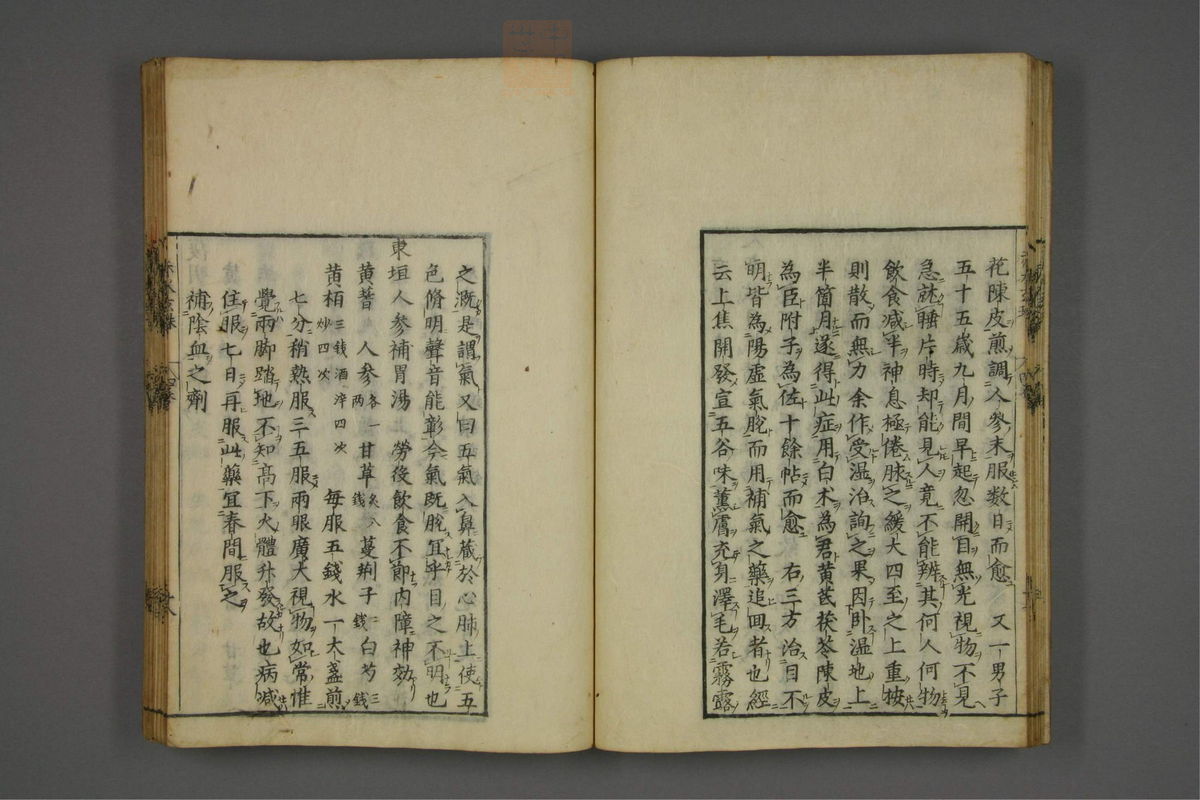 花陳皮煎調人參末服数日而愈　又一男子
五十五歳九月間早起忽開目無光視物不見
急就睡片時却能見人竟不能辨其何人何物
飲食减半神息極倦脉之緩大四至之上重按
則散而無力余作受湿治詢之果因卧湿地上
半箇月遂得此症用白朮為君黄芪茯苓陳皮
為臣附子為佐十餘帖而愈　右三方治目不
明皆為陽虚氣脱而用補氣之藥追回者也經
云上焦開發宣五谷味薫膚充身澤毛若霧露
之溉是謂氣又曰五氣入鼻蔵於心肺上使五
色脩明聲音能彰今氣既脱宜乎目之不明也
東垣人參補胃湯　勞後飲食不節内障神効
黄耆　人參各一両　甘草炙八錢　蔓荊子二錢　白芍三錢
黄栢三錢酒淬四次炒四次　毎服五錢水一大盞煎
七分稍熱服三五服兩眼廣大視物如常惟
覺兩脚踏地不知高下火體升發故也病减
住服七日再服此藥宜春間服之
補陰血之劑